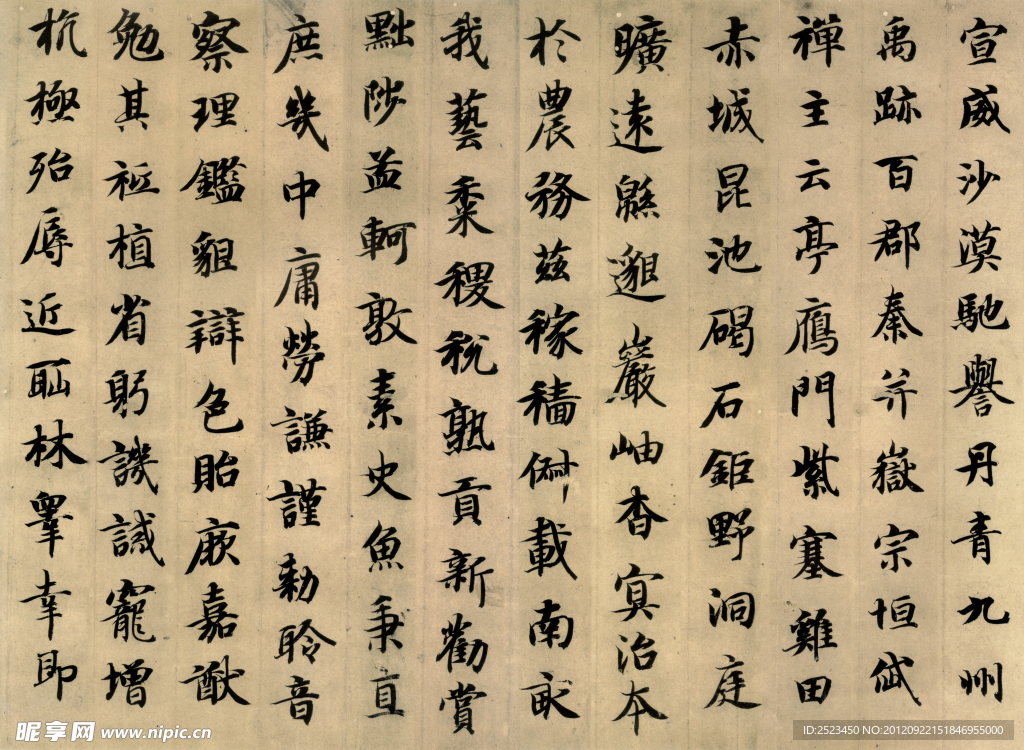 宣威沙漠馳譽丹青九州
禹跡百郡秦并嶽宗恒岱
禪主云亭鴈門紫塞雞田
赤城昆池碣石鉅野洞庭
曠遠緜邈巖岫杳冥治本
於農務茲稼穡俶載南畝
我藝黍稷稅熟貢新勸賞
黜陟孟軻敦素史魚秉直
庶幾中庸勞謙謹勅聆音
察理鑑貌辯色貽厥嘉猷
勉其祗植省躬譏誡寵增
抗極殆辱近恥林睪幸即
昵享网 www.nipic.cn
ID:2523450 NO:20120922151846955000